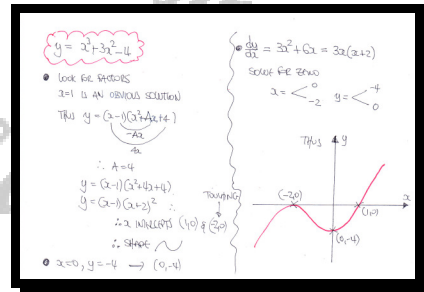 y = x³+3x²-4
• LOOK FOR FACTORS
x=1 IS AN OBVIOUS SOLUTION
THUS y = (x-1)(x²+Ax+4)
-Ax
4x
∴ A=4
y = (x-1)(x²+4x+4)
y = (x-1)(x+2)²
TOUCHING
∴ x INTERCEPTS (1,0) & (-2,0)
∴ SHAPE
• x=0, y=-4 → (0,-4)
• dy/dx = 3x²+6x = 3x(x+2)
SOLVE FOR ZERO
x = < 0 -2 y = < -4 0
THUS
y
(-2,0)
x
(1,0)
(0,-4)